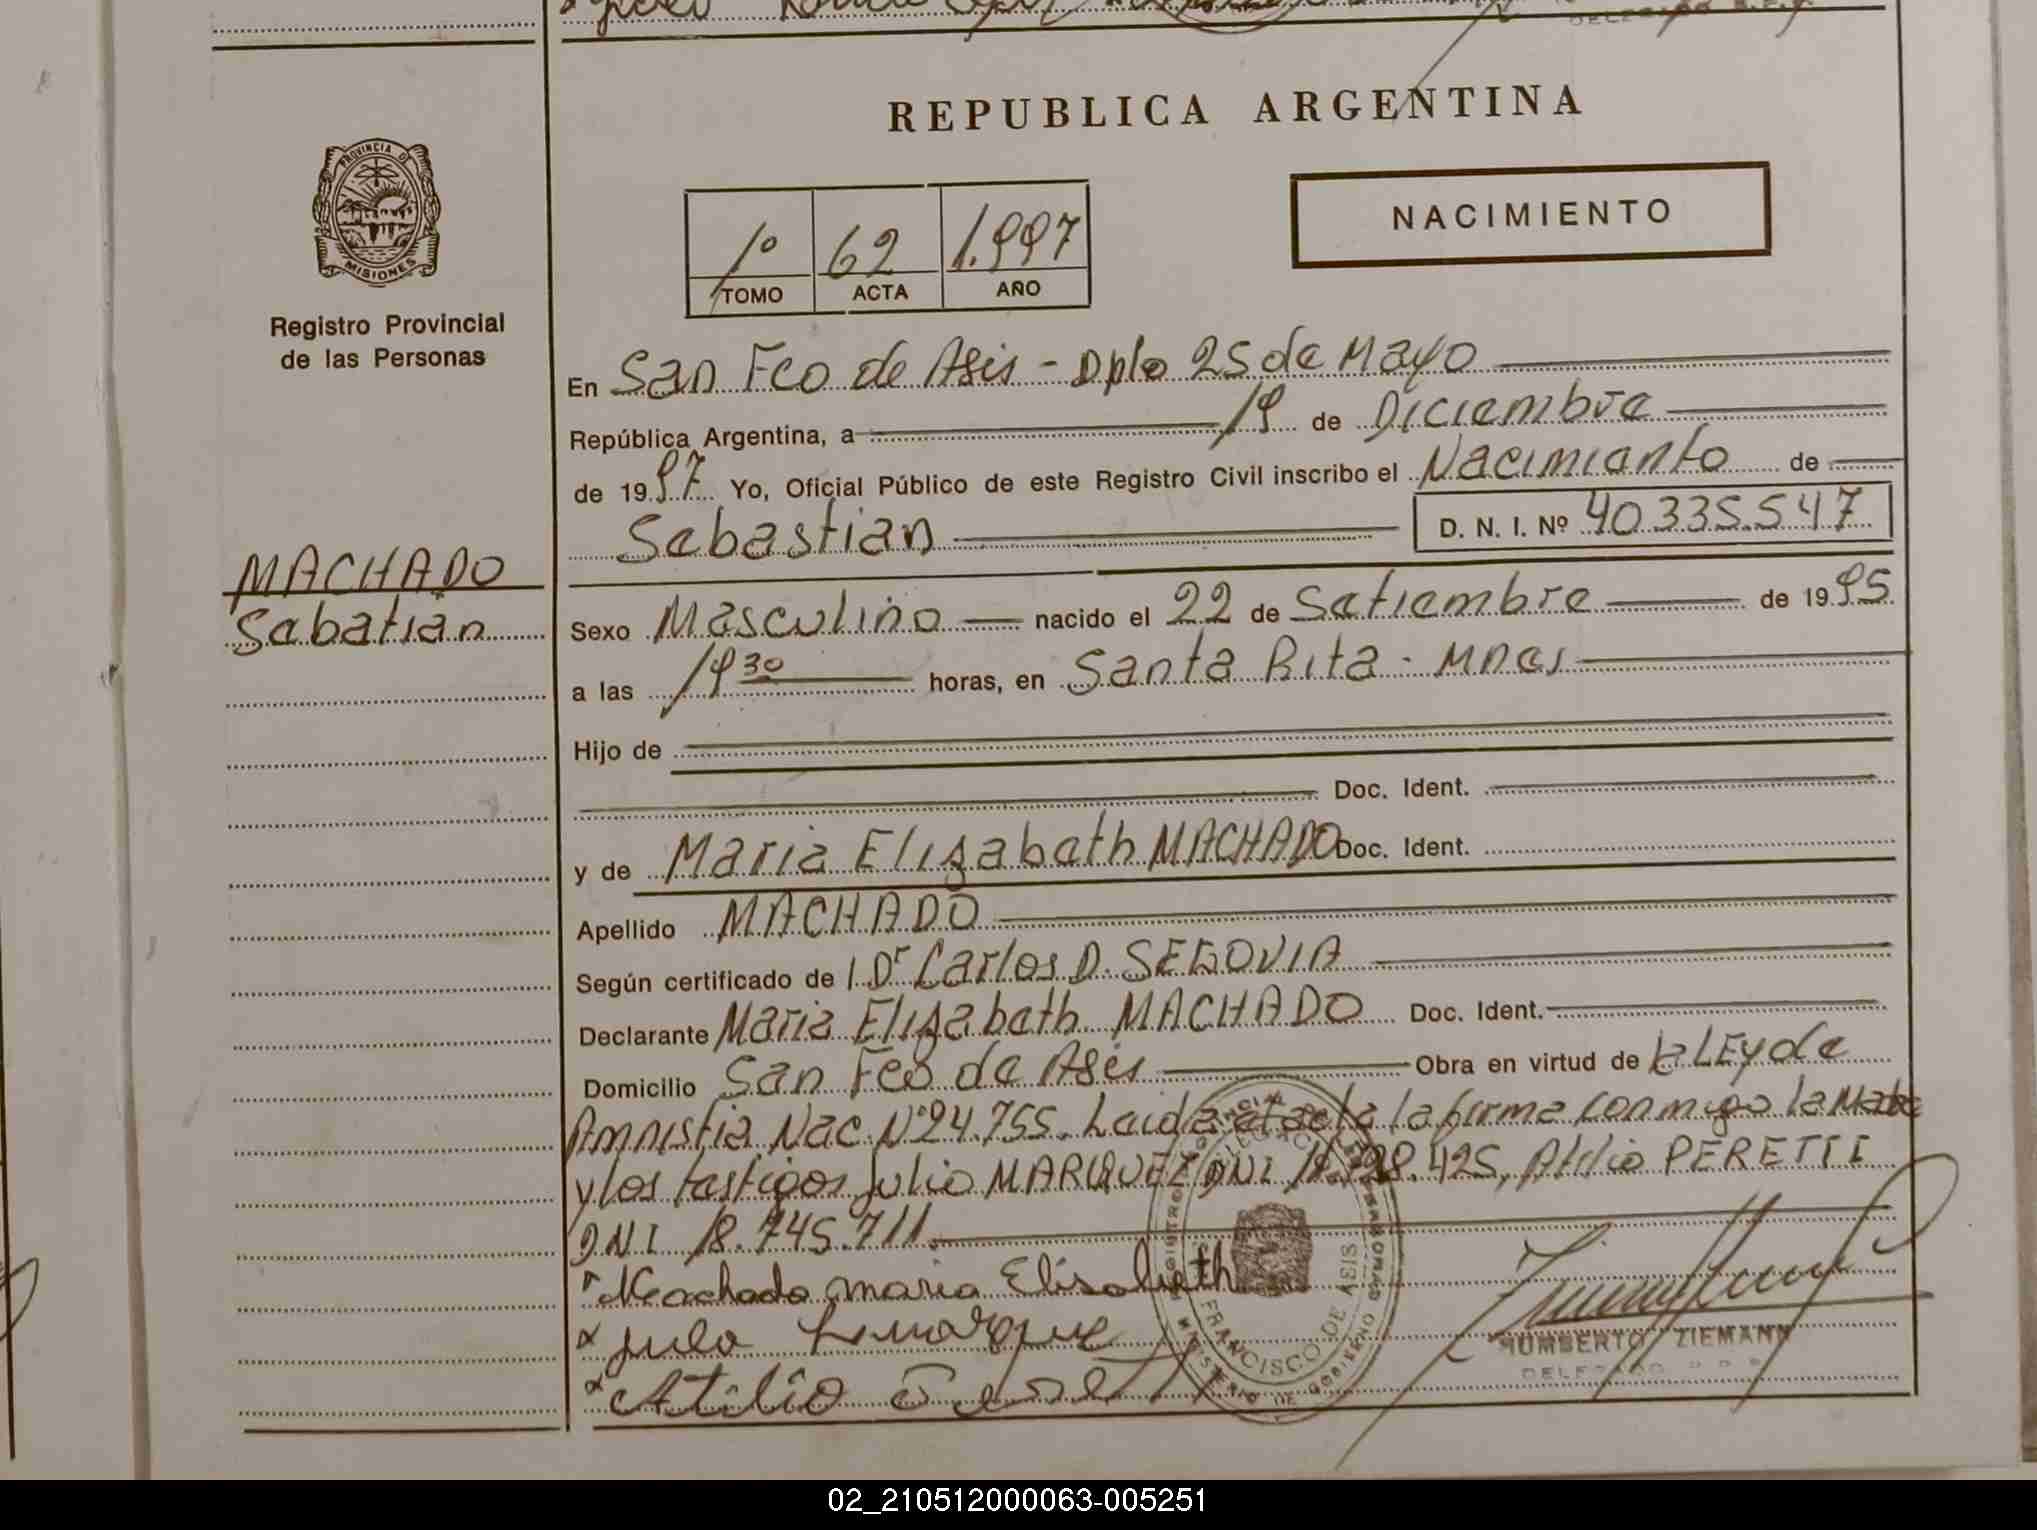 REPUBLICA ARGENTINA
PROVINCIA DE
MISIONES
Registro Provincial
de las Personas
NACIMIENTO
1º 62 1.997
TOMO ACTA AÑO
En San Fco de Asis - Dpto 25 de Mayo
República Argentina, a 19 de Diciembre
de 19 97 Yo, Oficial Público de este Registro Civil inscribo el Nacimiento de
Sebastian D. N. I. Nº 40.335.547
MACHADO
Sabatian
Sexo Masculino nacido el 22 de Setiembre de 19 95
a las 19 30 horas, en Santa Rita - Mnes
Hijo de
Doc. Ident.
y de Maria Elisabeth MACHADO Doc. Ident.
Apellido MACHADO
Según certificado de Dr Carlos D. SEGOVIA
Declarante Maria Elisabeth MACHADO Doc. Ident.
Domicilio San Fco de Asis Obra en virtud de la LEY de
Amnistia Nac. Nº 24.755. Leida el acta la firma conmigo la Madre
y los testigos Julio MARQUEZ DNI 425, Atilio PERETTI
DNI 18.745.711.
Machado maria Elisabeth
Atilio
FRANCISCO DE ASIS
MINISTERIO DE GOBIERNO
HUMBERTO ZIEMANN
DELEGADO R.P.P.
02_210512000063-005251